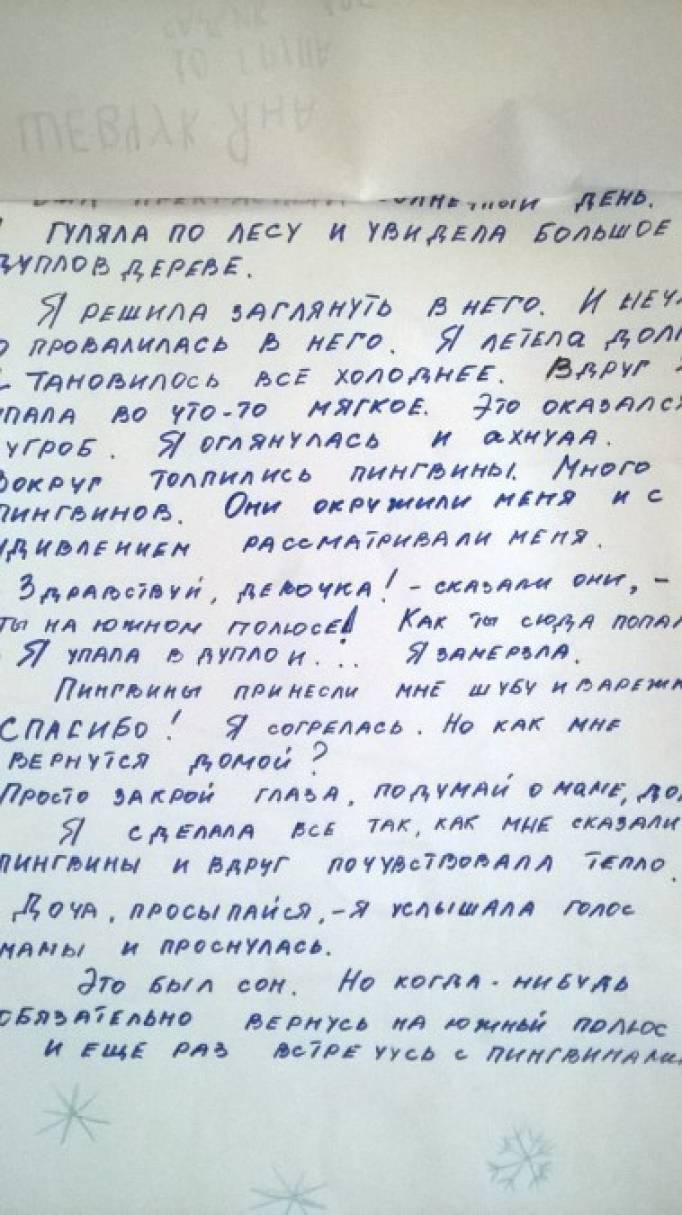 10 ГРУПА
ШЕВЧУК ЯНА
ДЕНЬ.
ГУЛЯЛА ПО ЛЕСУ И УВИДЕЛА БОЛЬШОЕ
ДУПЛОВ ДЕРЕВЕ.
Я РЕШИЛА ЗАГЛЯНУТЬ В НЕГО. И НЕЧА
О ПРОВАЛИЛАСЬ В НЕГО. Я ЛЕТЕЛА ДОЛГ
ТАНОВИЛОСЬ ВСЕ ХОЛОДНЕЕ. ВДРУГ
УПАЛА ВО ЧТО-ТО МЯГКОЕ. ЭТО ОКАЗАЛСЯ
УГРОБ. Я ОГЛЯНУЛАСЬ И АХНУЛА.
ВОКРУГ ТОЛПИЛИСЬ ПИНГВИНЫ. МНОГО
ПИНГВИНОВ. ОНИ ОКРУЖИЛИ МЕНЯ И С
УДИВЛЕНИЕМ РАССМАТРИВАЛИ МЕНЯ.
ЗДРАВСТВУЙ, ДЕВОЧКА! - СКАЗАЛИ ОНИ, -
ТЫ НА ЮЖНОМ ПОЛЮСЕ! КАК ТЫ СЮДА ПОПАЛ
- Я УПАЛА В ДУПЛО И... Я ЗАМЕРЗЛА.
ПИНГВИНЫ ПРИНЕСЛИ МНЕ ШУБУ И ВАРЕЖК
СПАСИБО! Я СОГРЕЛАСЬ. НО КАК МНЕ
ВЕРНУТСЯ ДОМОЙ?
ПРОСТО ЗАКРОЙ ГЛАЗА, ПОДУМАЙ О МАМЕ, ДО
Я СДЕЛАЛА ВСЕ ТАК, КАК МНЕ СКАЗАЛИ
ПИНГВИНЫ И ВДРУГ ПОЧУВСТВОВАЛА ТЕПЛО.
ДОЧА, ПРОСЫПАЙСЯ, - Я УСЛЫШАЛА ГОЛОС
МАМЫ И ПРОСНУЛАСЬ.
ЭТО БЫЛ СОН. НО КОГДА-НИБУДЬ
ОБЯЗАТЕЛЬНО ВЕРНУСЬ НА ЮЖНЫЙ ПОЛЮС
И ЕЩЕ РАЗ ВСТРЕЧУСЬ С ПИНГВИНАМИ